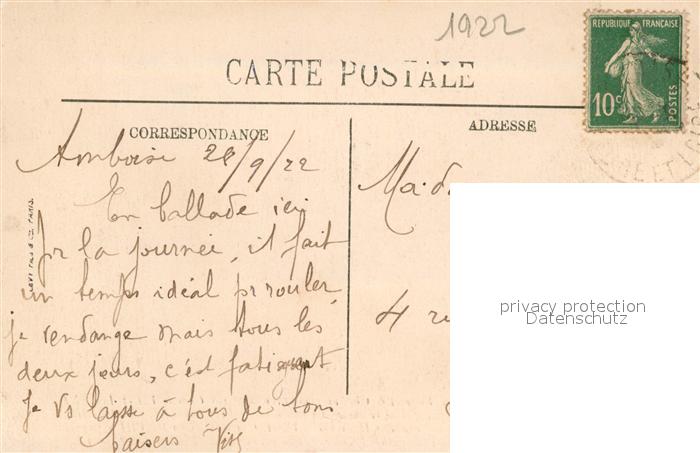 1922
RÉPUBLIQUE FRANÇAISE
10c
POSTES
CARTE POSTALE
CORRESPONDANCE
ADRESSE
Amboise 28/9/22
En ballade ici
pr la journée, il fait
un temps idéal pr rouler,
je vendange mais tous les
deux jours, c'est fatigant
Je vs laisse à tous de bons
baisers
Mada
4 ru
ET LOIR
privacy protection
Datenschutz